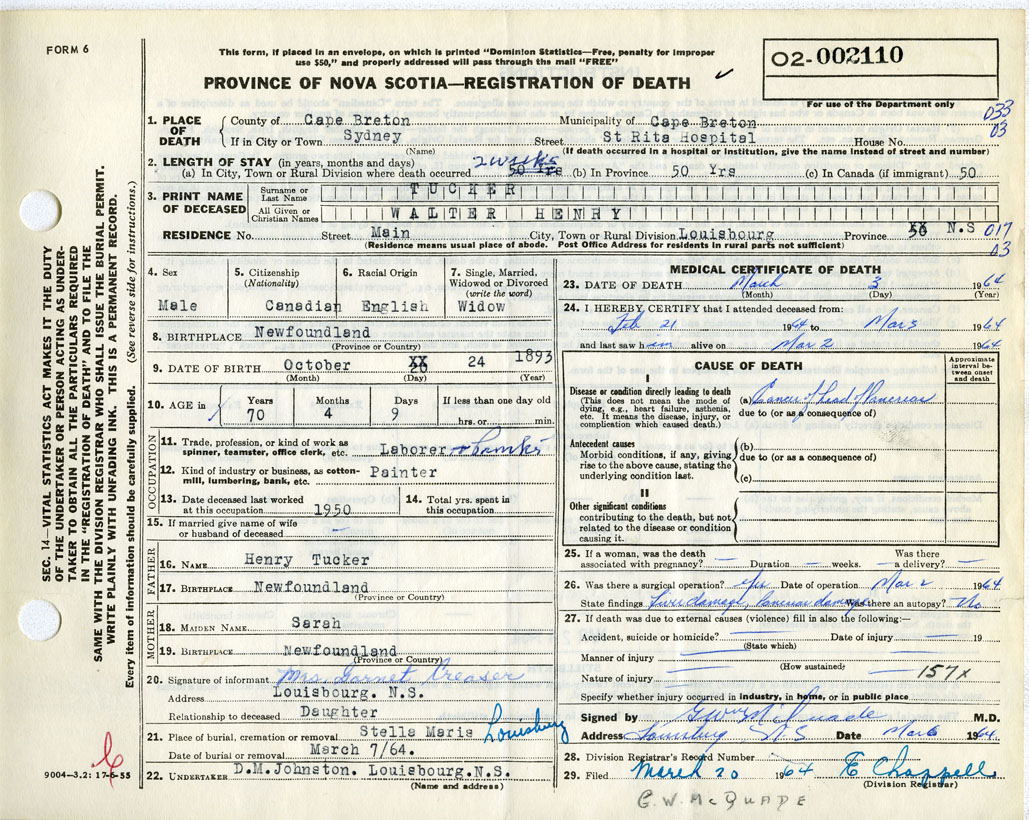 FORM 6
This form, if placed in an envelope, on which is printed “Dominion Statistics—Free, penalty for improper
use $50,” and properly addressed will pass through the mail “FREE”
PROVINCE OF NOVA SCOTIA—REGISTRATION OF DEATH
O2-002110
For use of the Department only
033
03
1. PLACE OF DEATH
County of Cape Breton Municipality of Cape Breton
If in City or Town Sydney Street St Rita Hospital House No.
(Name) (If death occurred in a hospital or institution, give the name instead of street and number)
2. LENGTH OF STAY (in years, months and days)
(a) In City, Town or Rural Division where death occurred 2 weeks 50 Yrs (b) In Province 50 Yrs (c) In Canada (if immigrant) 50
3. PRINT NAME OF DECEASED
Surname or Last Name TUCKER
All Given or Christian Names WALTER HENRY
RESIDENCE No. Street Main City, Town or Rural Division Louisbourg Province XX 50 N.S 017
03
(Residence means usual place of abode. Post Office Address for residents in rural parts not sufficient)
4. Sex
Male
5. Citizenship
(Nationality)
Canadian
6. Racial Origin
English
7. Single, Married,
Widowed or Divorced
(write the word)
Widow
8. BIRTHPLACE Newfoundland
(Province or Country)
9. DATE OF BIRTH October XX 20 24 1893
(Month) (Day) (Year)
10. AGE in
Years Months Days If less than one day old
70 4 9 hrs. or min.
OCCUPATION
11. Trade, profession, or kind of work as
spinner, teamster, office clerk, etc. Laborer
12. Kind of industry or business, as cotton-
mill, lumbering, bank, etc. Painter
13. Date deceased last worked
at this occupation 1950
14. Total yrs. spent in
this occupation
15. If married give name of wife
or husband of deceased —
FATHER
16. NAME Henry Tucker
17. BIRTHPLACE Newfoundland
(Province or Country)
MOTHER
18. MAIDEN NAME Sarah
19. BIRTHPLACE Newfoundland
(Province or Country)
20. Signature of informant Mrs Garnet Creaser
Address Louisbourg. N.S.
Relationship to deceased Daughter
21. Place of burial, cremation or removal Stella Maris Louisburg
Date of burial or removal March 7/64.
22. UNDERTAKER D.M.Johnston. Louisbourg.N.S.
(Name and address)
MEDICAL CERTIFICATE OF DEATH
23. DATE OF DEATH March 3 1964
(Month) (Day) (Year)
24. I HEREBY CERTIFY that I attended deceased from:
Feb 21 1964 to Mar 3 1964
and last saw him alive on Mar 2 1964
CAUSE OF DEATH
Approximate
interval be-
tween onset
and death
I
Disease or condition directly leading to death
(This does not mean the mode of
dying, e.g., heart failure, asthenia,
etc. It means the disease, injury, or
complication which caused death.)
(a) Cancer of head of Pancreas
due to (or as a consequence of)
Antecedent causes
Morbid conditions, if any, giving
rise to the above cause, stating the
underlying condition last.
(b)
due to (or as a consequence of)
(c)
II
Other significant conditions
contributing to the death, but not
related to the disease or condition
causing it.
25. If a woman, was the death
associated with pregnancy? — Duration — weeks. Was there
—a delivery? —
26. Was there a surgical operation? yes Date of operation Mar 2 1964
State findings Liver damage, Was there an autopsy? No
27. If death was due to external causes (violence) fill in also the following:—
Accident, suicide or homicide? — Date of injury — 19
(State which)
Manner of injury —
(How sustained)
Nature of injury — 157x
Specify whether injury occurred in industry, in home, or in public place
Signed by G W McQuade M.D.
Address Louisburg N.S. Date Mar 6 1964
28. Division Registrar's Record Number
29. Filed March 20 1964 E Chappell
(Division Registrar)
G.W. McQUADE
9004—3.2: 17-6-55
SEC. 14—VITAL STATISTICS ACT MAKES IT THE DUTY
OF THE UNDERTAKER OR PERSON ACTING AS UNDER-
TAKER TO OBTAIN ALL THE PARTICULARS REQUIRED
IN THE “REGISTRATION OF DEATH” AND TO FILE THE
SAME WITH THE DIVISION REGISTRAR WHO SHALL ISSUE THE BURIAL PERMIT.
WRITE PLAINLY WITH UNFADING INK. THIS IS A PERMANENT RECORD.
Every item of information should be carefully supplied. (See reverse side for instructions.)